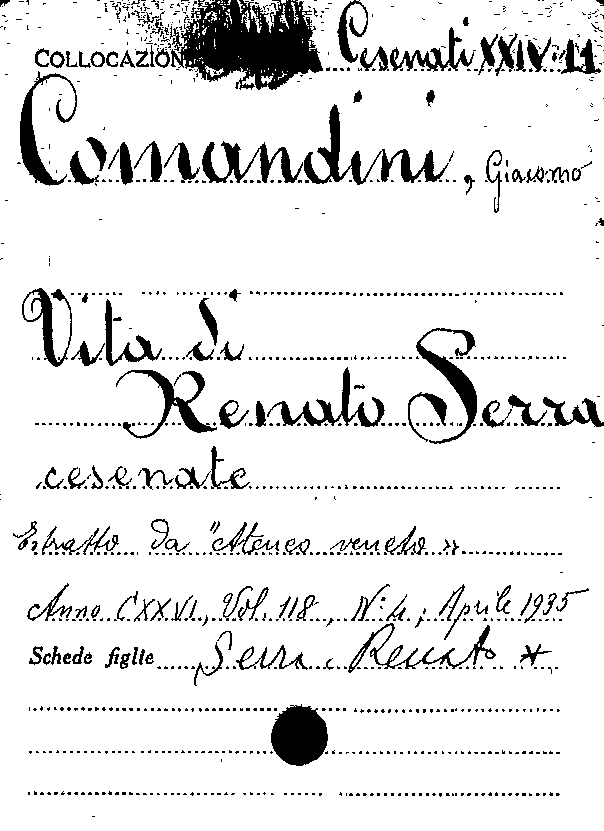 COLLOCAZIONE Cesenati XXIV.11
Comandini, Giacomo
Vita di
Renato Serra
cesenate
Estratto da "Ateneo veneto»
Anno CXXVI, Vol. 118, N: 4; Aprile 1935
Schede figlie Serra, Renato *